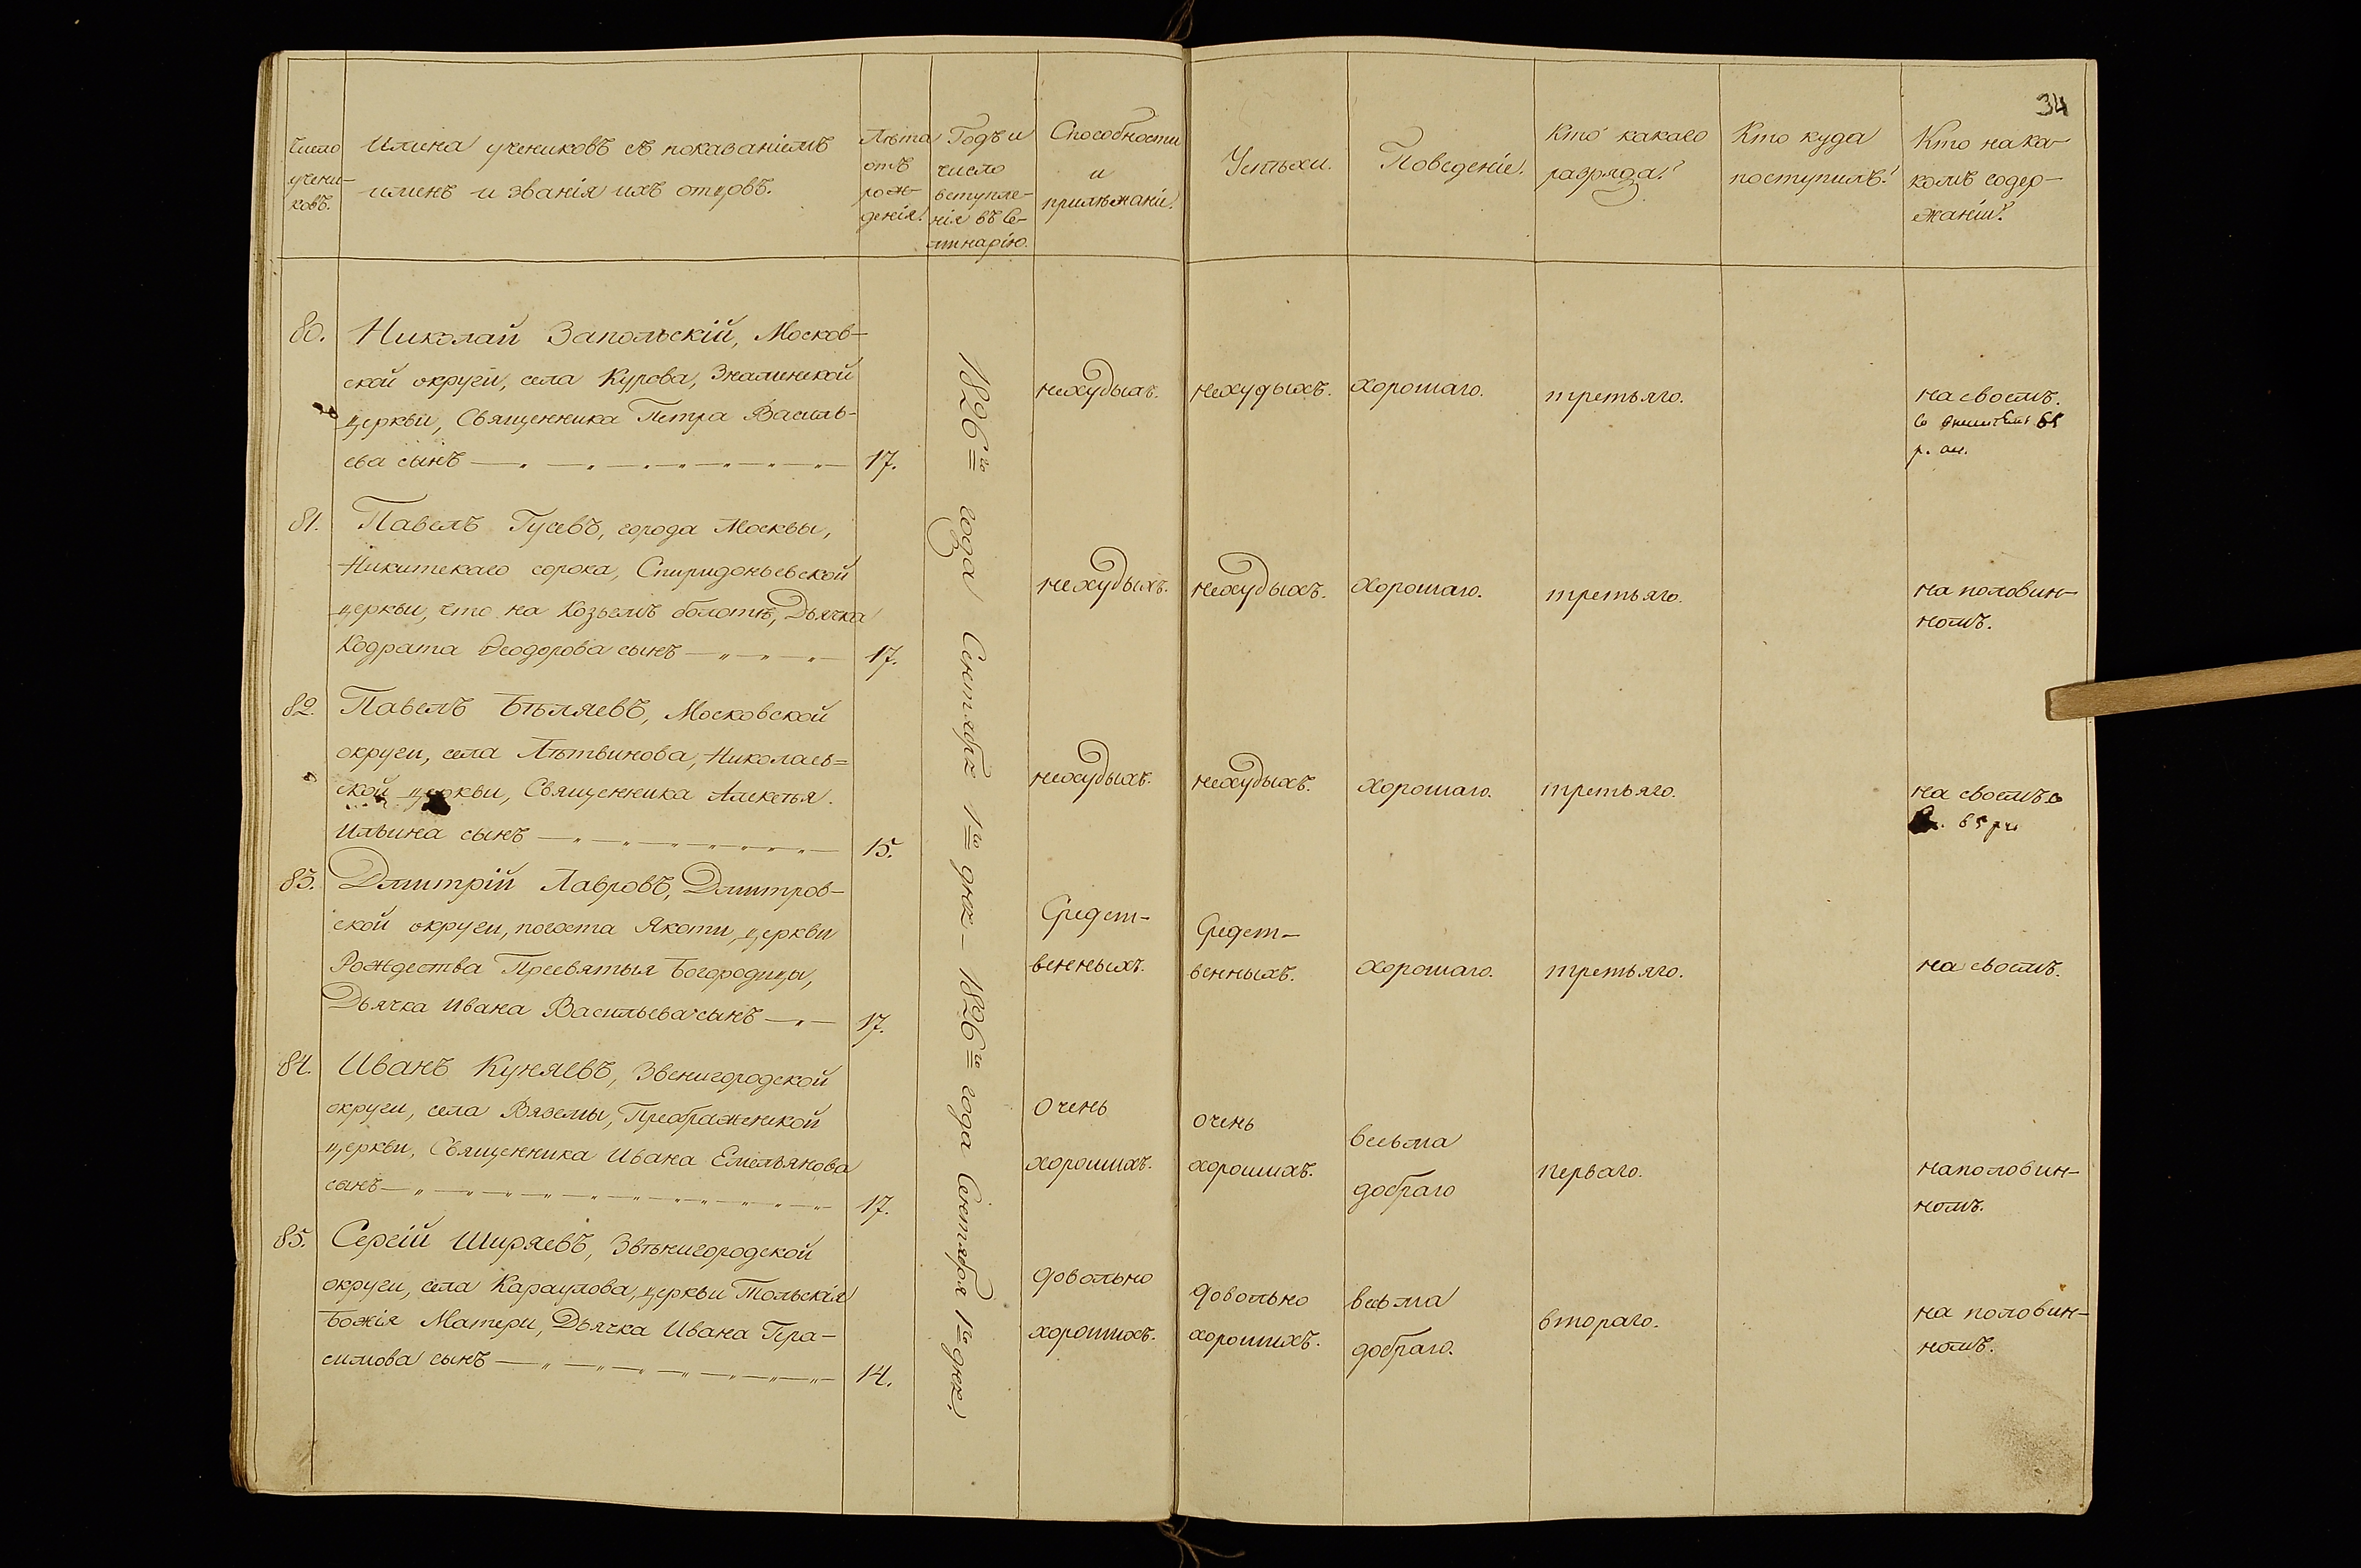 34
Число учени-
ковъ.
Имена учениковъ съ показаніемъ
именъ и званія ихъ отцовъ.
Лѣта
отъ
рож-
денія.
Годъ и
число
вступле-
нія въ Се-
минарію.
Способности
и
прилѣжаніе.
Успѣхи.
Поведеніе.
Кто какаго
разряда?
Кто куда
поступилъ?
Кто на ка-
комъ содер-
жаніи?
1826го года Сентября 1го дня – 1826го года Сентября 1го дня.
80.
Николай Запольскій, Москов-
ской округи, села Курова, Знаменской
церкви, Священника Петра Василь-
ева сынъ
17.
нехудыхъ.
нехудыхъ.
хорошаго.
третьяго.
на своемъ.
81.
Павелъ Гусевъ, города Москвы,
Никитскаго сорока, Спиридоньевской
церкви, что на Козьемъ болотѣ, Дьячка
Кодрата Ѳеодорова сынъ
17.
нехудыхъ.
нехудыхъ.
хорошаго.
третьяго.
на половин-
номъ.
82.
Павелъ Бѣляевъ, Московской
округи, села Лѣтвинова, Николаев=
ской церкви, Священника Алексѣя
Ильина сынъ
15.
нехудыхъ.
нехудыхъ.
хорошаго.
третьяго.
на своемъ
83.
Дмитрій Лавровъ, Дмитров-
ской округи, погоста Якоти, церкви
Рождества Пресвятыя Богородицы,
Дьячка Ивана Васильева сынъ
17.
Средст-
венныхъ.
Средст-
венныхъ.
хорошаго.
третьяго.
на своемъ.
84.
Иванъ Куняевъ, Звенигородской
округи, села Вяземы, Преображенской
церкви, Священника Ивана Емельянова
сынъ
17.
очень
хорошихъ.
очень
хорошихъ.
весьма
добраго
перваго.
на половин-
номъ.
85.
Сергій Ширяевъ, Звѣнигородской
округи, села Караулова, церкви Тольскія
Божія Матери, Дьячка Ивана Гера-
симова сынъ
14.
довольно
хорошихъ.
довольно
хорошихъ.
весьма
добраго.
втораго.
на половин-
номъ.